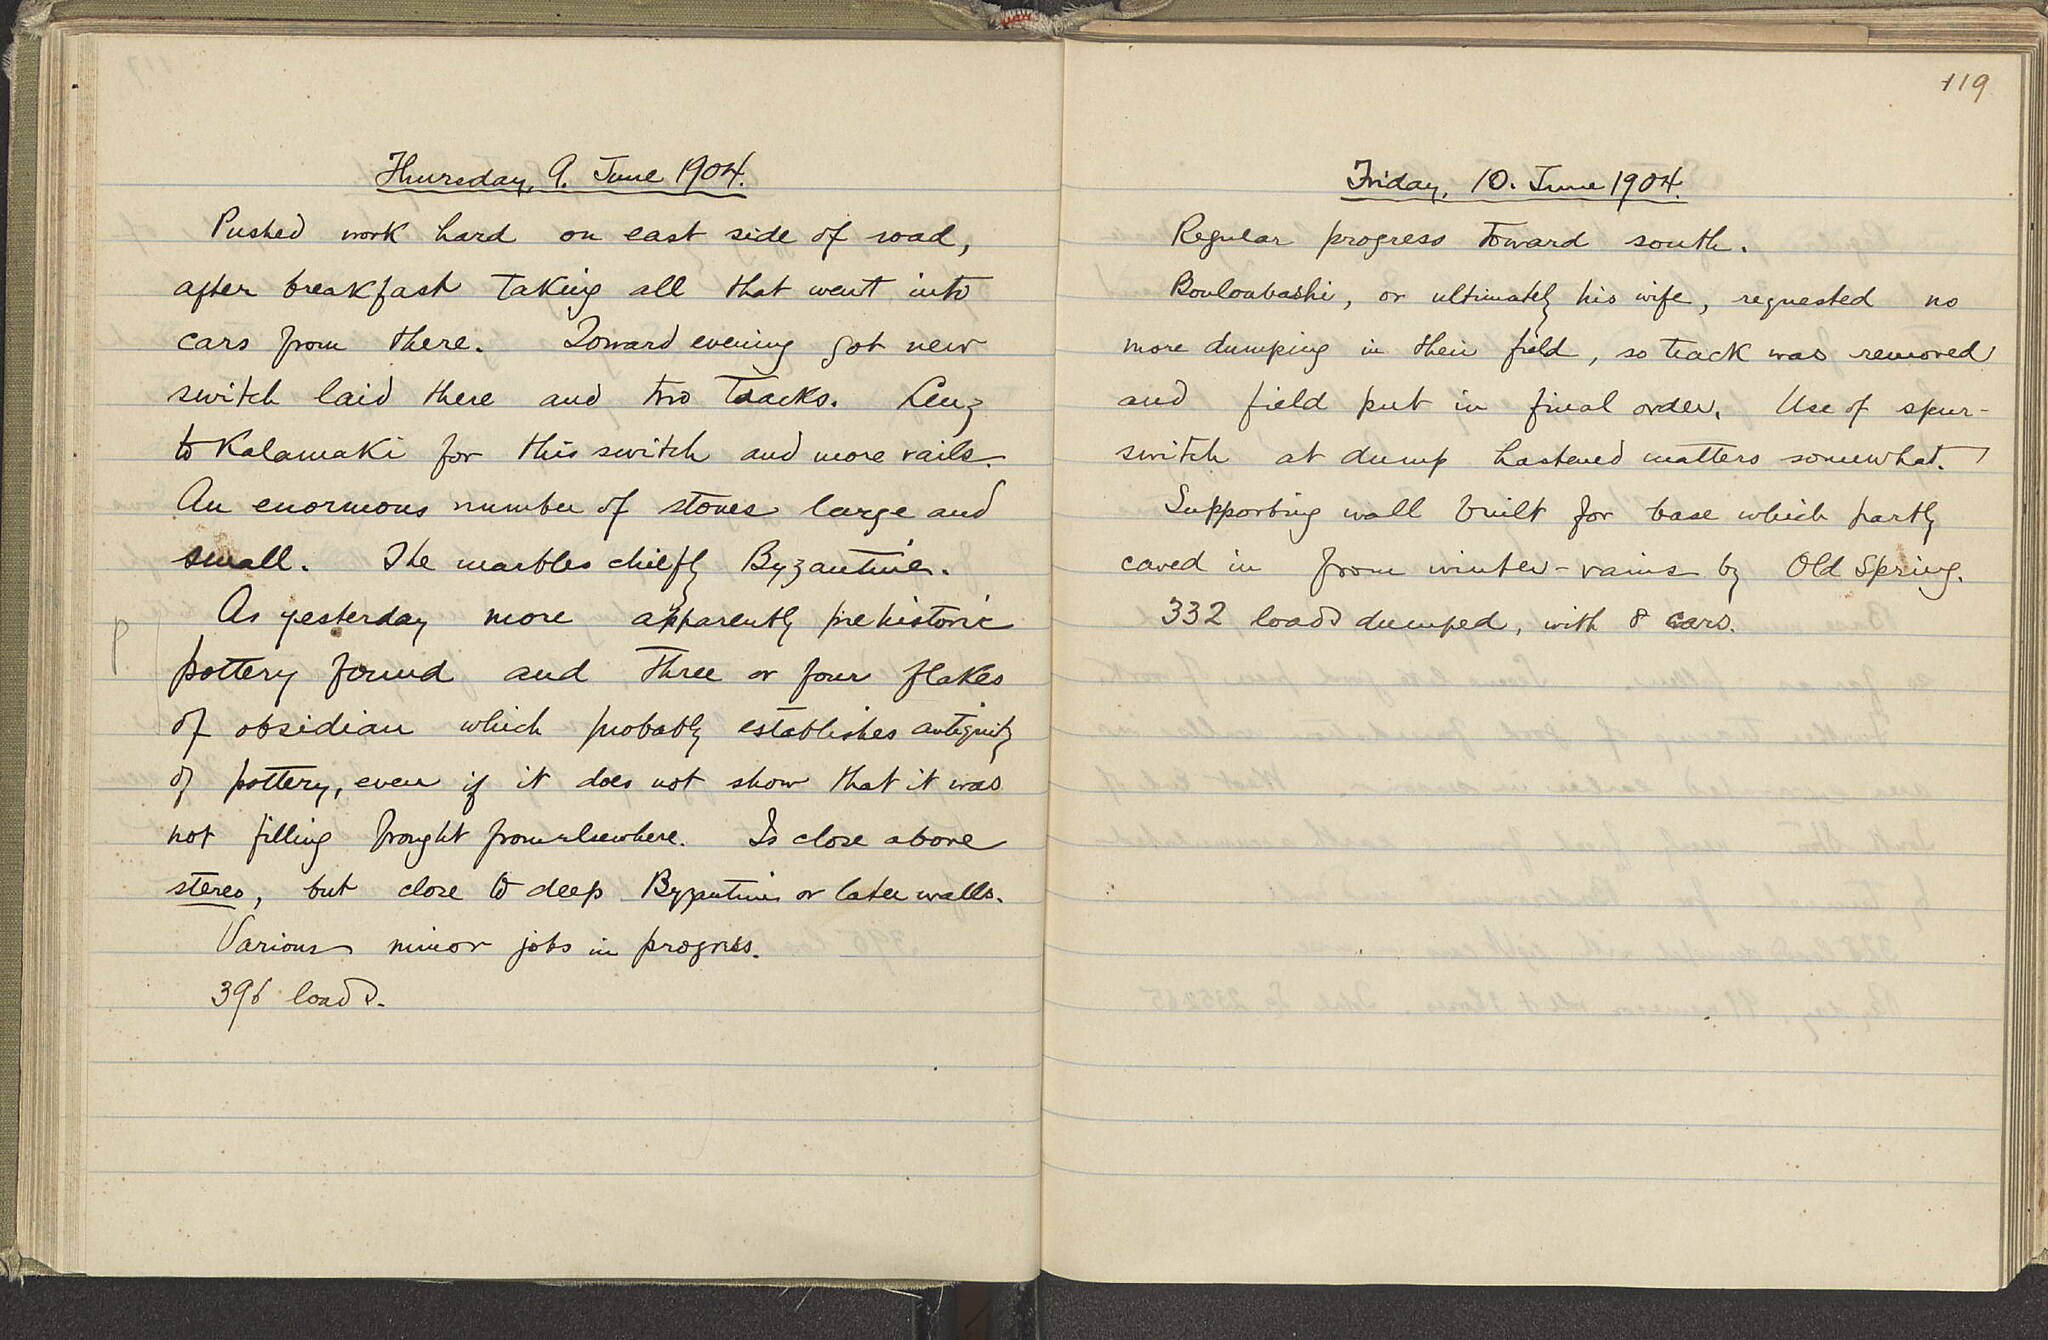 Thursday, 9. June 1904.
Pushed work hard on east side of road,
after breakfast taking all that went into
cars from there. Toward evening got new
switch laid there and two tracks. Lenz
to Kalamaki for this switch and more rails.
An enormous number of stones large and
small. The marbles chiefly Byzantine.
As yesterday more apparently prehistoric
P
pottery found and three or four flakes
of obsidian which probably establishes antiquity
of pottery, even if it does not show that it was
not filling brought from elsewhere. Is close above
stereo, but close to deep Byzantine or later walls.
Various minor jobs in progress.
396 loads.
119
Friday, 10. June 1904.
Regular progress toward south.
Bouloubashi, or ultimately his wife, requested no
more dumping in their field, so track was removed
and field put in final order. Use of spur-
switch at dump hastened matters somewhat.
Supporting wall built for base which partly
caved in from winter-rains by Old Spring.
332 loads dumped, with 8 cars.